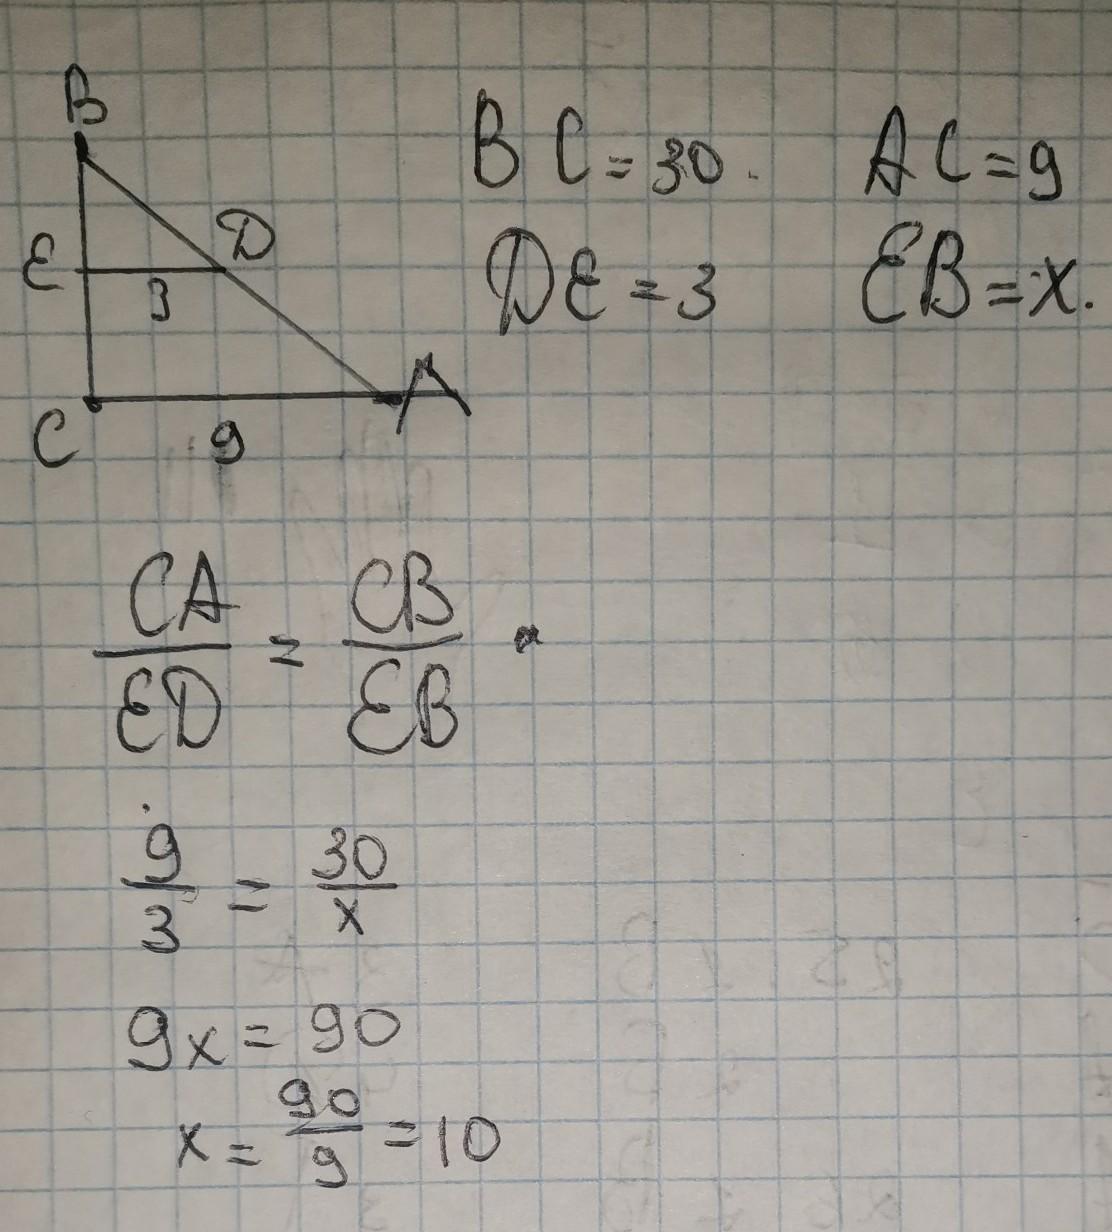 B
E
D
3
C
9
A
BC = 30. AC = 9
DE = 3 EB = x.
CA/ED = CB/EB
9/3 = 30/x
9x = 90
x = 90/9 = 10